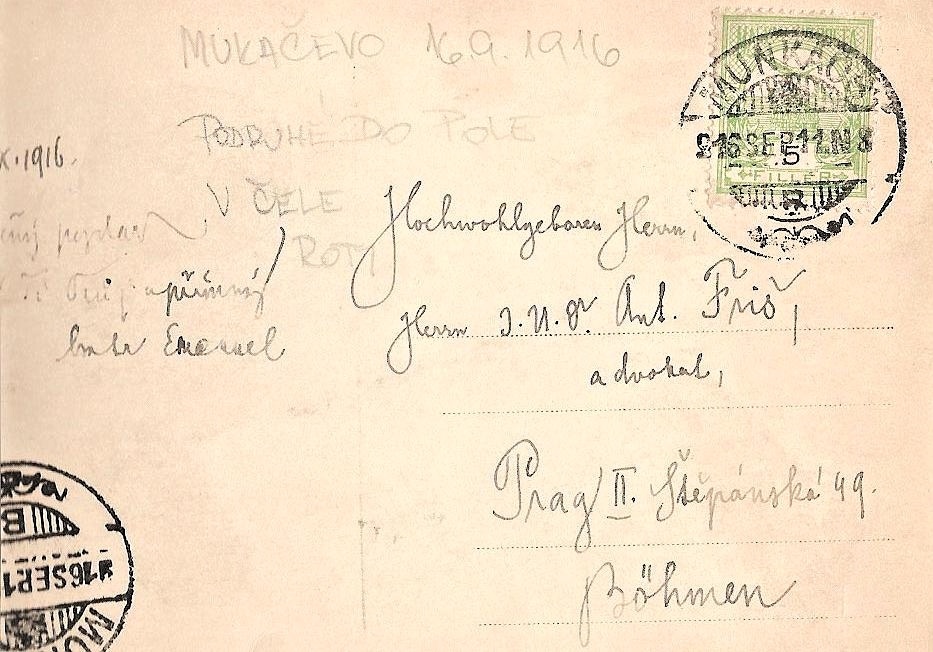 MUKAČEVO 16.9.1916
PODRUHÉ DO POLE
V ČELE
ROTY
X. 1916.
upřímný
bratr Emanuel
Hochwohlgeboren Herrn,
Herrn J.U.Dr. Ant. Friš,
advokat,
Prag II. Štěpánská 49.
Böhmen
MUNKÁCS
916 SEP 11. N 8
5
FILLÉR
B
916 SEP 1
MU